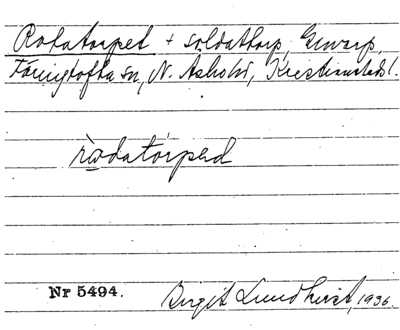 Rotatorpet + soldattorp, Gunarp,
Färingtofta sn, N. Åsbohd, Kristianstads l.
rωdatórpəd
Nr 5494.
Birgit Lundkvist, 1936.